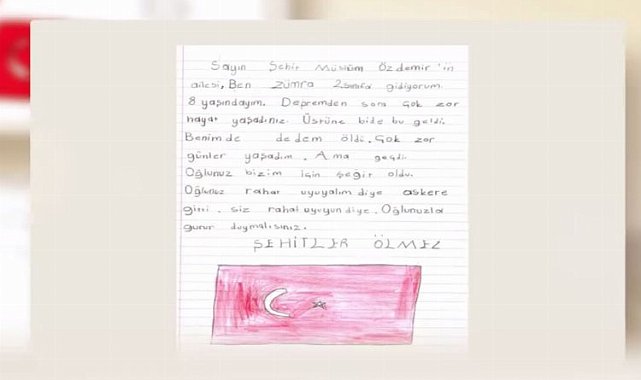 Sayın Şehit Müslüm Özdemir'in
ailesi, Ben Zümra 2.sınıfa gidiyorum.
8 yaşındayım. Depremden sora çok zor
hayat yaşadınız. Üstüne bide bu geldi.
Benimde dedem öldi. Çok zor
günler yaşadım. Ama geçdi.
Oğlunuz bizim için şegir oldu.
Oğlunuz rahar uyuyalım diye askere
girri. siz rahat uyuyun diye. Oğlunuzla
gurur duymalısınız.
ŞEHİTLER ÖLMEZ